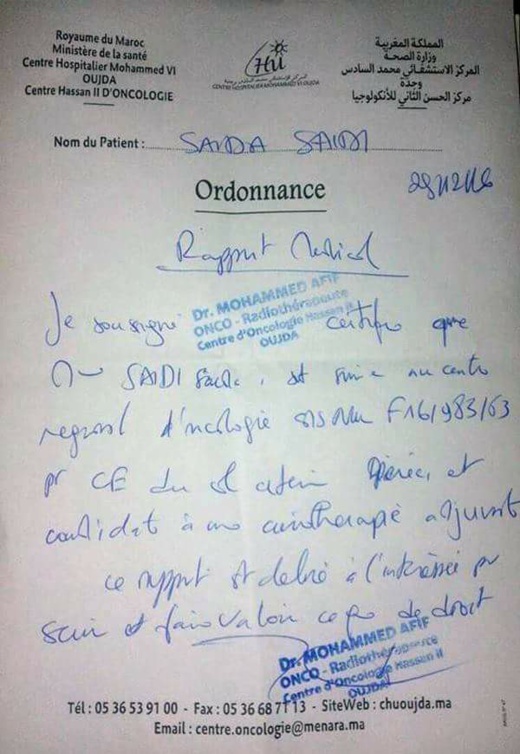 Royaume du Maroc
Ministère de la santé
Centre Hospitalier Mohammed VI
OUJDA
Centre Hassan II D'ONCOLOGIE
CHU
CENTRE HOSPITALIER MOHAMMED VI OUJDA
المملكة المغربية
وزارة الصحة
المركز الاستشفائي محمد السادس
وجدة
مركز الحسن الثاني للأنكولوجيا
Nom du Patient : SAIDA SAIDI
Ordonnance
Rapport Médical
Dr. MOHAMMED AFIF
ONCO - Radiothérapeute
Centre d'Oncologie Hassan II
OUJDA
Je soussigné certifie que
SAIDI est suivie au centre
régional d'oncologie sous F16/983/63
et
candidat à une adjuvant
ce rapport est délivré à l'intéressée pr
servir et faire valoir ce que de droit
Dr. MOHAMMED AFIF
ONCO - Radiothérapeute
Centre d'Oncologie Hassan II
OUJDA
Tél : 05 36 53 91 00 - Fax : 05 36 68 71 13 - SiteWeb : chuoujda.ma
Email : centre.oncologie@menara.ma